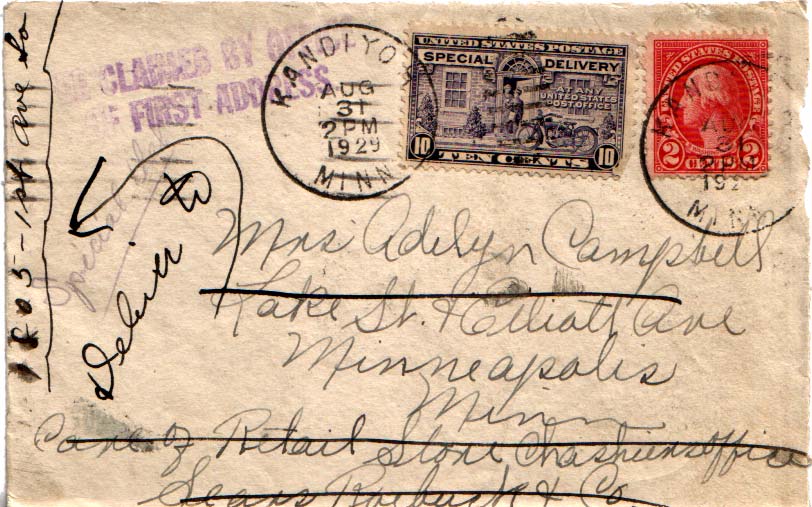 CLAIMED BY
FIRST ADDRESS
KANDIYO
AUG
31
2 PM
1929
MINN
UNITED STATES POSTAGE
SPECIAL DELIVERY
AT ANY
UNITED STATES
POST OFFICE
10 TEN CENTS 10
UNITED STATES POSTAGE
2 CENTS 2
KAND
2 PM
192
MINN
1805 - 1st Ave So
Special
Deliver to
Mrs Adelyn Campbell
Lake St. & Elliott Ave
Minneapolis
Minn
Care of Retail Store Chashiers office
Sears Roebuck & Co